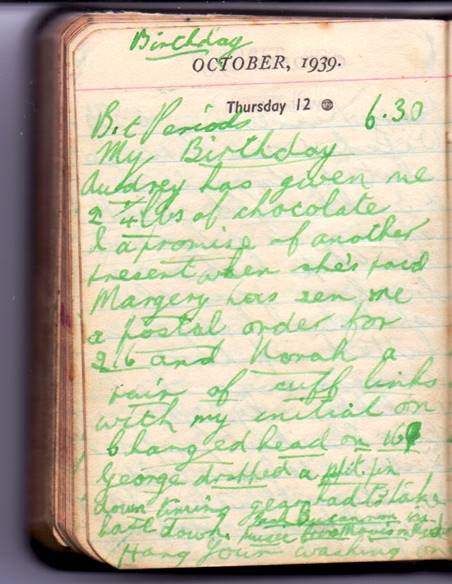 Birthday
OCTOBER, 1939.
Thursday 12
B.t Periods 6.30
My Birthday
Audrey has given me
2 1/4 lbs of chocolate
& a promise of another
present when she's paid
Margery has sen me
a postal order for
2.6 and Norah a
pair of cuff links
with my initial on
changed head on 16
George dropped a split pin
down timing gear had to take
back down.
Hang Your washing on